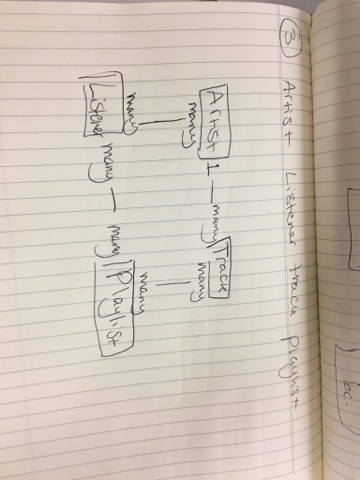 ③ Artist Listener track playlist
Artist 1 — many Track
many many
many many
Listener many — many Playlist
bc.